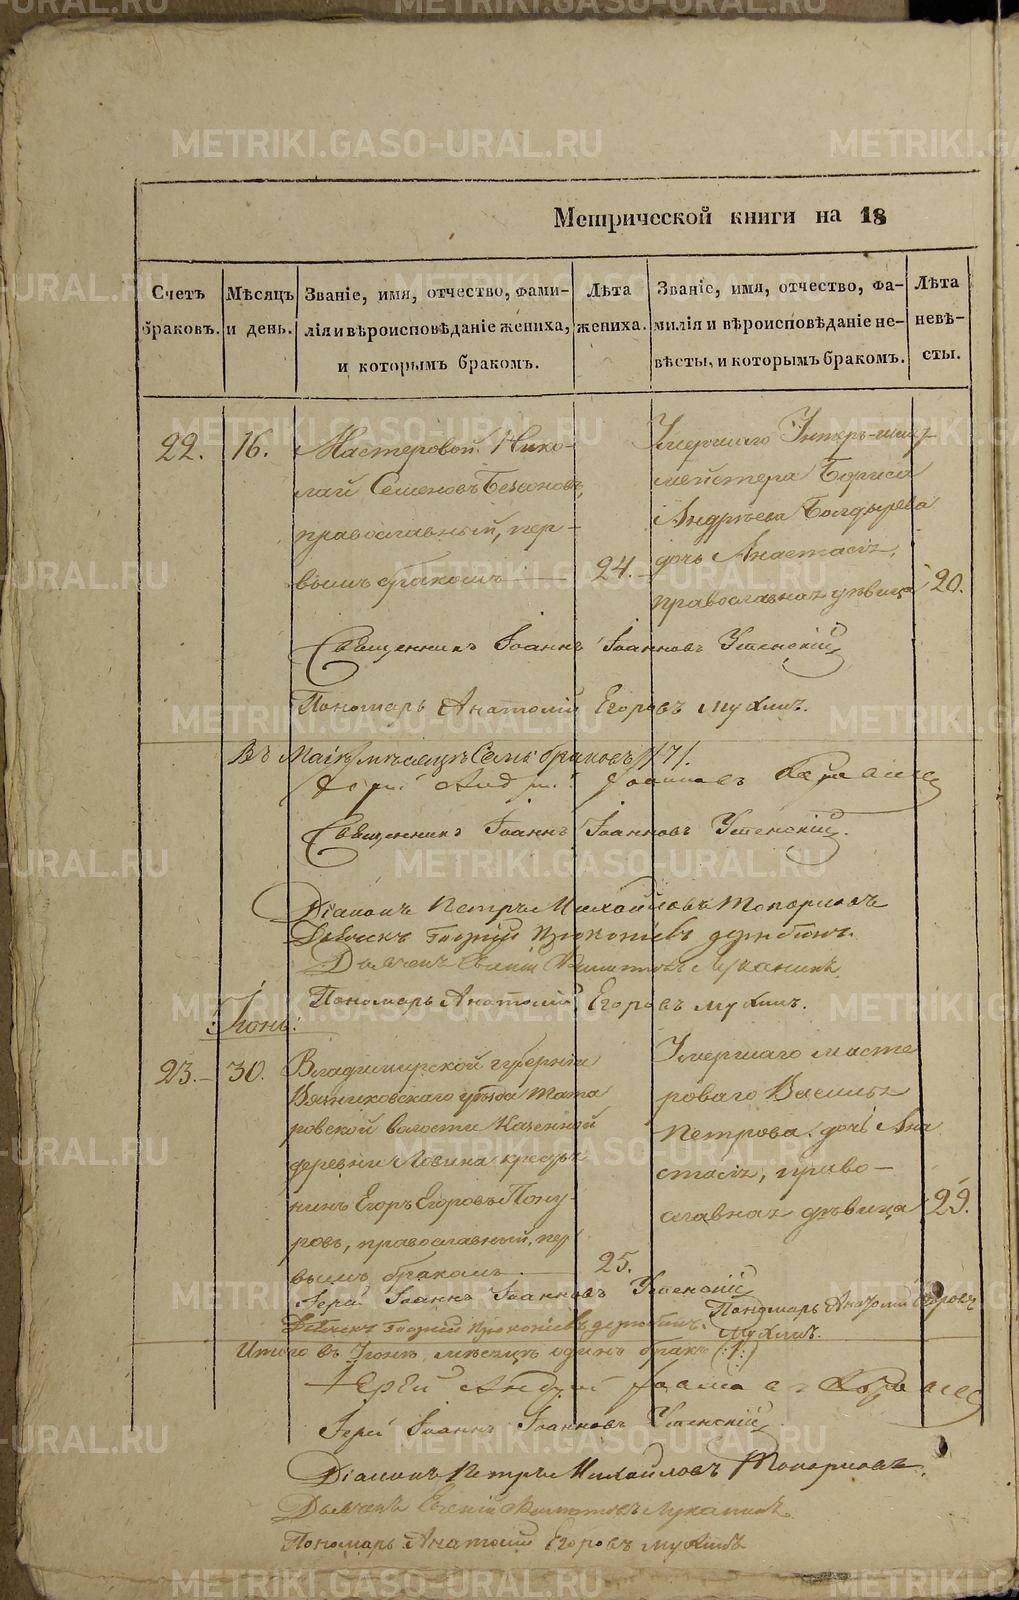 Метрической книги на 18
Счетъ браковъ.
Мѣсяцъ и день.
Званіе, имя, отчество, фами-
лія и вѣроисповѣданіе жениха,
и которымъ бракомъ.
Лѣта жениха.
Званіе, имя, отчество, фа-
милія и вѣроисповѣданіе не-
вѣсты, и которымъ бракомъ.
Лѣта невѣ-
сты.
22. 16.
Мастеровой Нико-
лай Семеновъ
православный, пер-
вымъ бракомъ
24.
Умершаго Унтеръ-шихт-
мейстера Бориса
Андреева Болдырева
дочь Анастасія,
православная дѣвица
20.
Священникъ Іоаннъ Іоанновъ Успенскій
Пономарь Анатолій Егоровъ Мухинъ.
Въ Маіѣ мѣсяцѣ Семь браковъ /7/.
Іерей Андрей Іоанновъ
Священникъ Іоаннъ Іоанновъ Успенскій.
Діаконъ Петръ Михайловъ Топорковъ
Дьячекъ Георгій Прокопіевъ
Дьячекъ Евгеній Луканинъ
Пономарь Анатолій Егоровъ Мухинъ.
Іюнь:
23. 30.
Владимирской губерніи
Вязниковскаго уѣзда Тата
ровской волости Казенной
деревни Ловина кресть
нинъ Егоръ Егоровъ
ровъ, православный, пер
вымъ бракомъ
25.
Умершаго масте
роваго Василья
Петрова дочь Ана
стасія, право-
славная дѣвица
29.
Іерей Іоаннъ Іоанновъ Успенскій
Дьячекъ Георгій Прокопіевъ
Пономарь Анатолій Егоровъ
Мухинъ.
Итого въ Іюнѣ мѣсяцѣ одинъ бракъ (:1:)
Іерей Андрей Іоанновъ
Іерей Іоаннъ Іоанновъ Успенскій
Діаконъ Петръ Михайловъ Топорковъ.
Дьячекъ Евгеній Луканинъ.
Пономарь Анатолій Егоровъ Мухинъ
METRIKI.GASO-URAL.RU